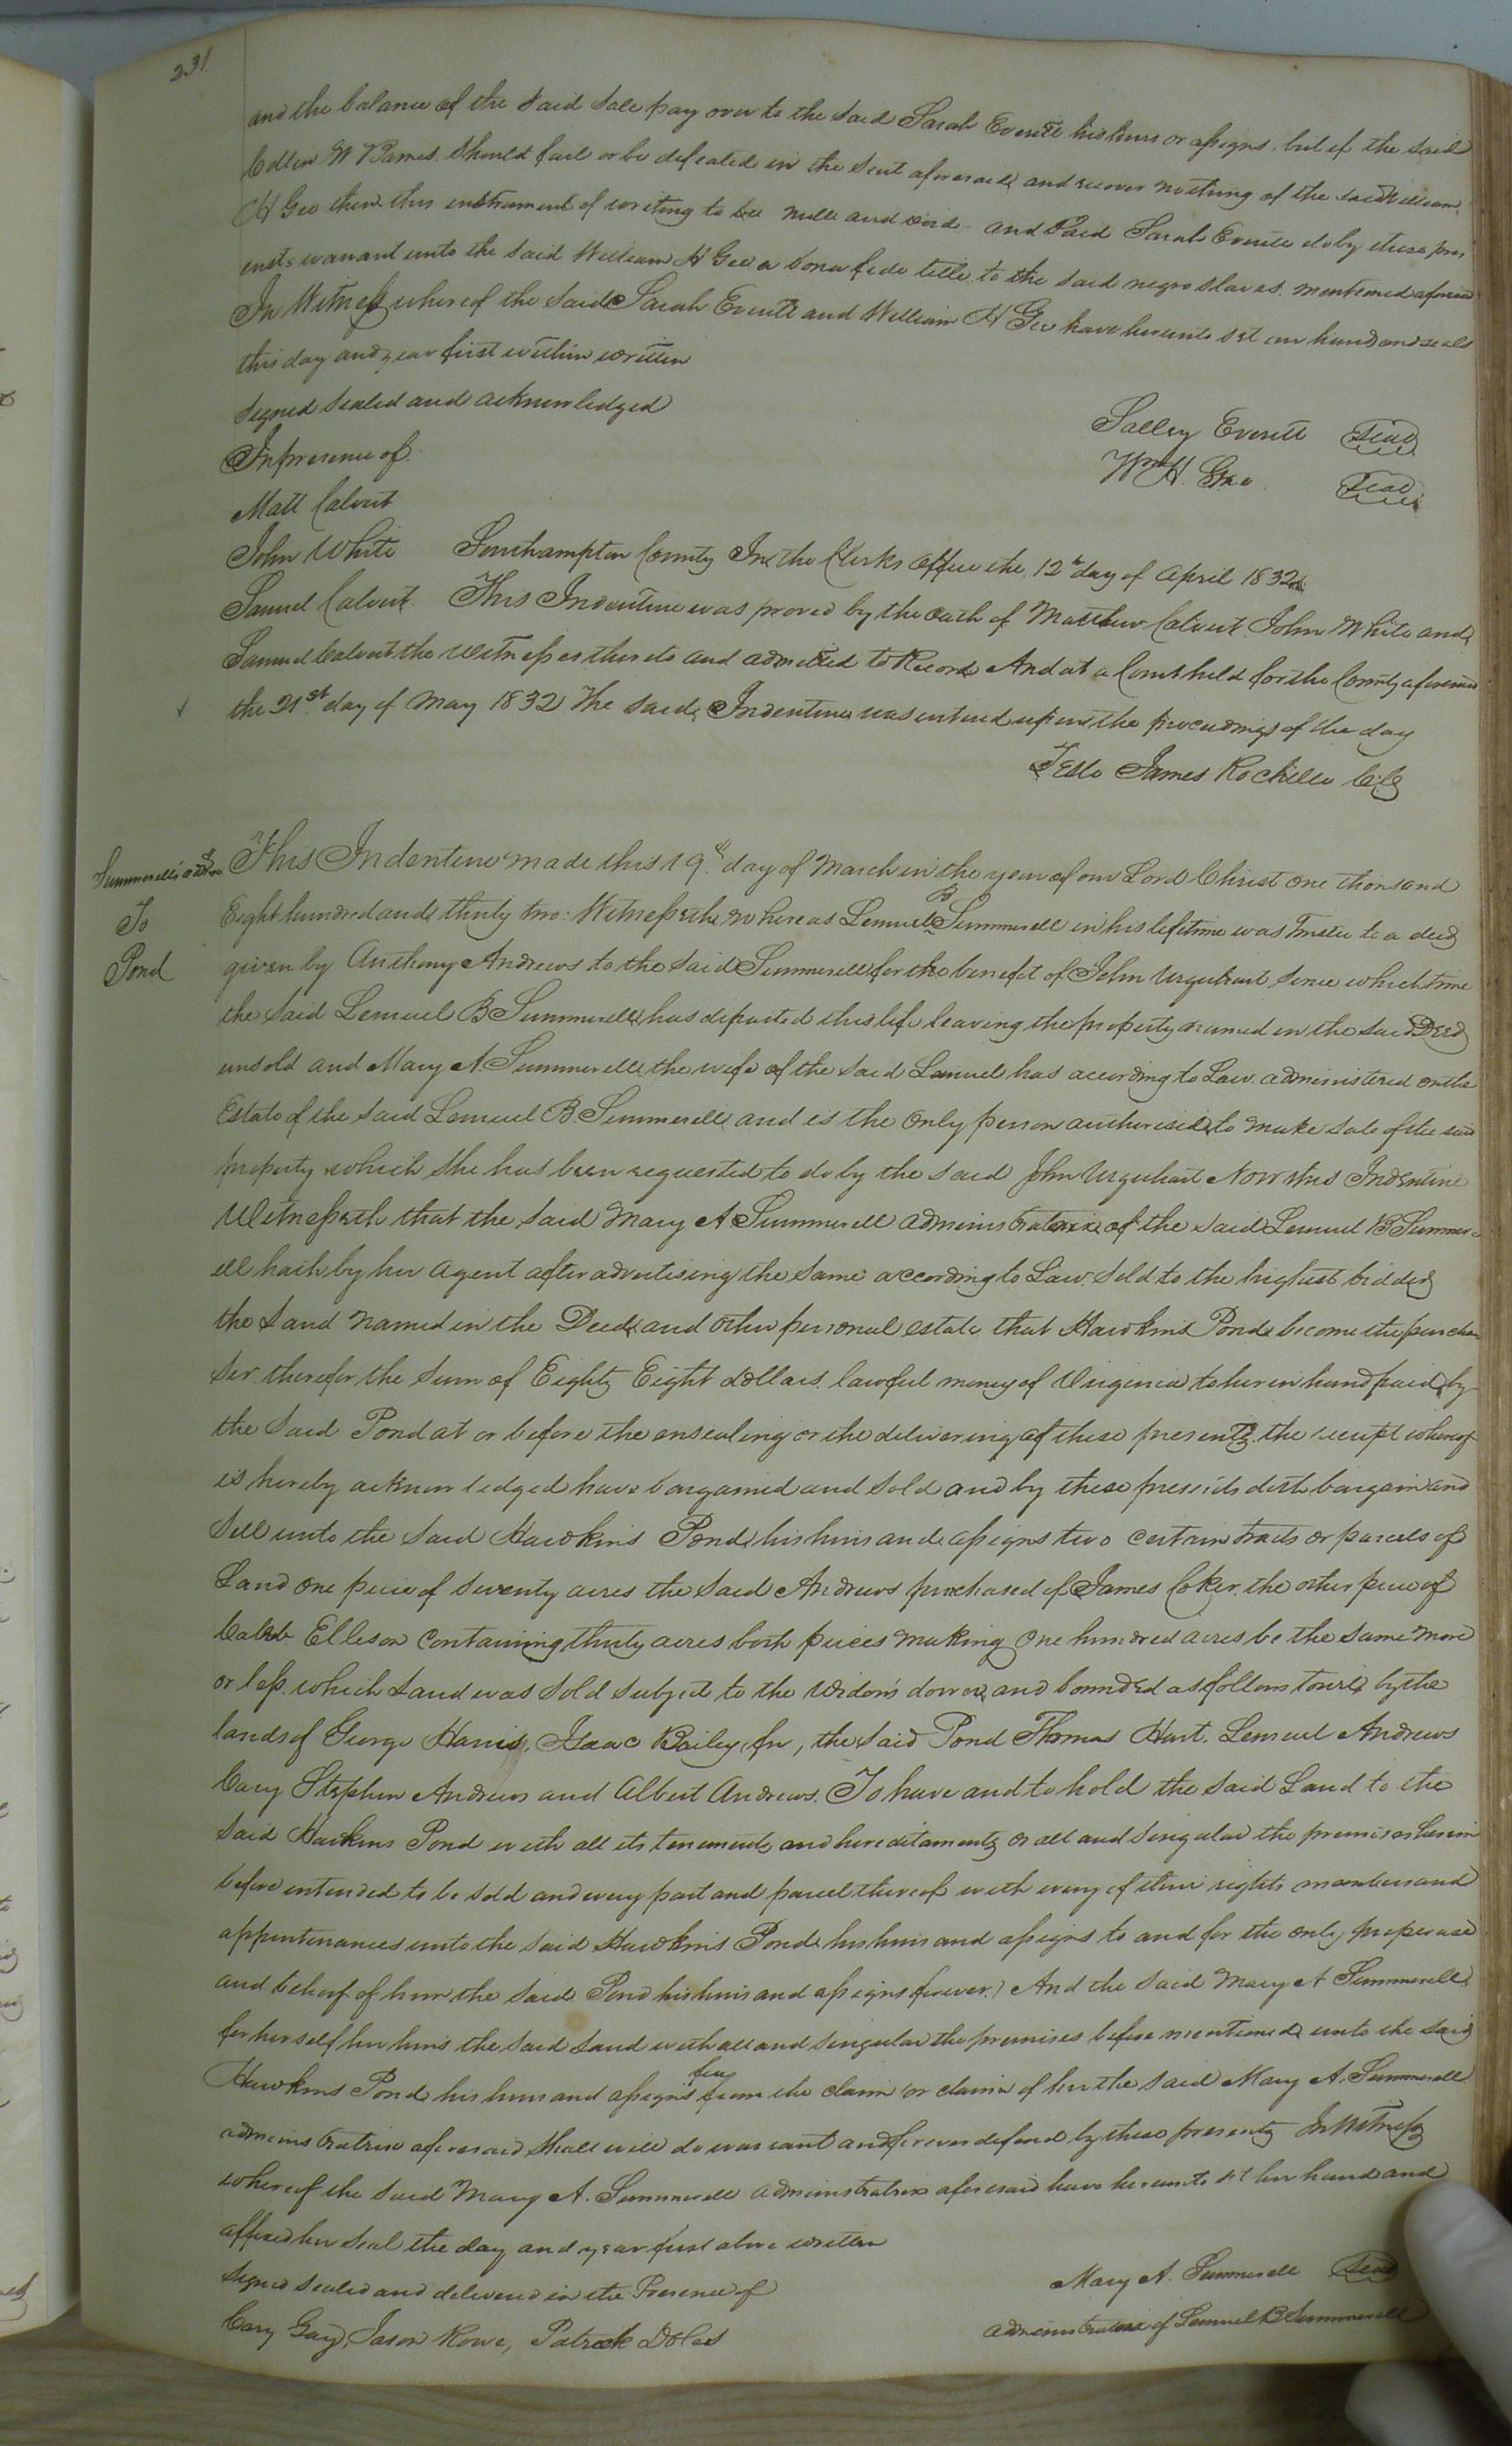 231
and the balance of the said sale pay over to the said Sarah Everitt his heirs or assigns, but if the said
W Barnes should fail or be defeated in the suit aforesaid and recover nothing of the said William
H Gee then this instrument of writing to be null and void and Said Sarah Everitt do by these pres
ents warrant unto the said William H Gee a bona fide title to the said negro slaves mentioned aforesaid
In Witness whereof the said Sarah Everitt and William H Gee have hereunto set our hand and seals
this day and year first within written
Signed sealed and acknowledged
In presence of
Salley Everitt Seal
Wm H. Gee Seal
Matt Calvert
John White
Southampton County In the Clerks office the 12th day of April 1832
Samuel Calvert
This Indenture was proved by the oath of Matthew Calvert John White and
Samuel Calvert the witnesses thereto and admitted to Record And at a Court held for the County aforesaid
the 21st day of May 1832 The said Indenture was entered upon the proceedings of the day
Teste James Rochelle C.C.
Summerell's admx
To
Pond
This Indenture made this 19th day of March in the year of our Lord Christ one thousand
Eight hundred and thirty two. Witnesseth whereas Lemuel B Summerell in his lifetime was Trustee to a deed
given by Anthony Andrews to the said Summerell for the benefit of John Urquhart since which time
the said Lemuel B Summerell has departed this life leaving the property named in the said Deed
unsold and Mary A. Summerell the wife of the said Lemuel has according to Law administered on the
Estate of the said Lemuel B. Summerell and is the only person authorised to make sale of the said
property which she has been requested to do by the said John Urquhart Now this Indenture
Witnesseth that the said Mary A Summerell administratrix of the said Lemuel B Summer
ell hath by her agent after advertising the same according to Law sold to the highest bidder
the Land named in the Deed and other personal estate that Hawkins Pond become the purcha
ser therefor the sum of Eighty Eight dollars lawful money of Virginia to her in hand paid by
the said Pond at or before the ensealing or the delivering of these presents the receipt whereof
is hereby acknowledged have bargained and sold and by these presents doth bargain and
sell unto the said Hawkins Pond his heirs and assigns two certain tracts or parcels of
Land one piece of seventy acres the said Andrews purchased of James Coker the other piece of
Caleb Ellison containing thirty acres both pieces making one hundred acres be the same more
or less which Land was sold subject to the widow's dower and bounded as follows towit by the
lands of George Harris, Isaac Bailey, Jn, the said Pond Thomas Hart, Lemuel Andrews
Cary Stephen Andrews and Albert Andrews. To have and to hold the said Land to the
said Hawkins Pond with all its tenements and hereditaments or all and singular the premises herein
before intended to be sold and every part and parcel thereof with every of their rights members and
appurtenances unto the said Hawkins Pond his heirs and assigns to and for the only proper use
and behoof of him the said Pond his heirs and assigns forever.) And the said Mary A Summerell
for herself her heirs the said Land with all and singular the premises before mentioned unto the said
Hawkins Pond his heirs and assigns free from the claim or claims of her the said Mary A. Summerell
administratrix aforesaid shall will do warrant and forever defend by these presents In Witness
whereof the said Mary A. Summerell administratrix aforesaid have hereunto set her hand and
affixed her seal the day and year first above written
Signed sealed and delivered in the Presence of
Mary A. Summerell Seal
administratrix of Lemuel B Summerell
Cary Gay, Jason Rowe, Patrick Doles